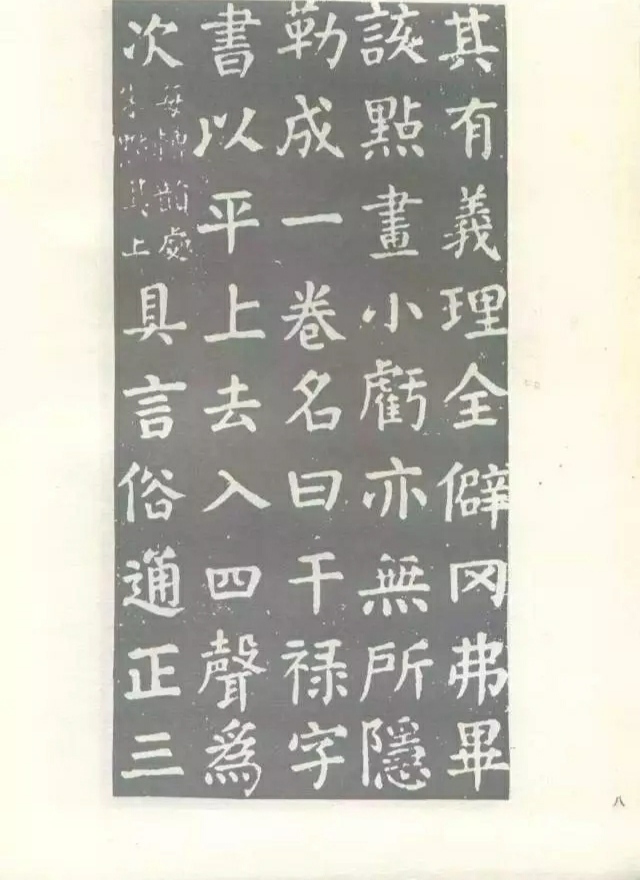 其有義理全僻冈弗畢
該點畫小虧亦無所隱
勒成一卷名曰干禄字
書以平上去入四聲爲
次每轉韻處朱點其上具言俗通正三
八